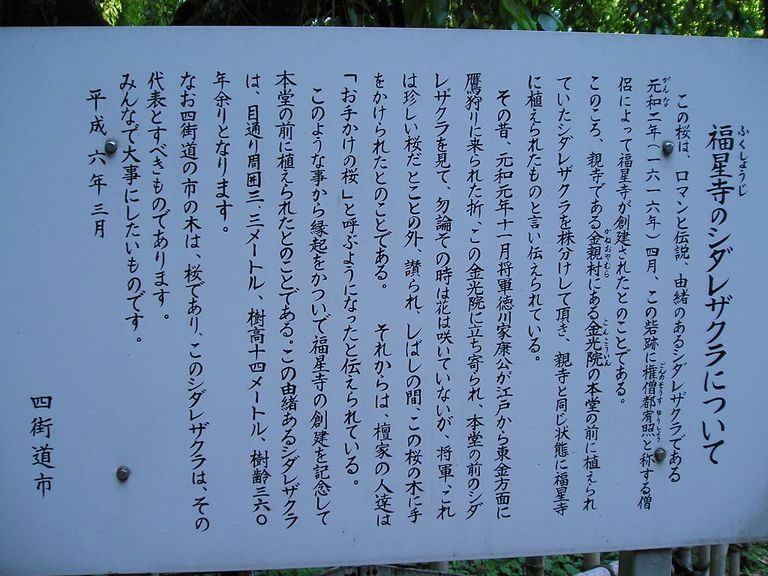 福星寺のシダレザクラについて
ふくしょうじ
この桜は、ロマンと伝説、由緒のあるシダレザクラである
元和二年(一六一六年)四月、この砦跡に権僧都宥照と称する僧
がんな
ごんのそうず ゆうしょう
侶によって福星寺が創建されたとのことである。
このころ、親寺である金親村にある金光院の本堂の前に植えられ
かねおやむら
こんこういん
ていたシダレザクラを株分けして頂き、親寺と同じ状態に福星寺
に植えられたものと言い伝えられている。
その昔、元和元年十一月将軍徳川家康公が江戸から東金方面に
鷹狩りに来られた折、この金光院に立ち寄られ、本堂の前のシダ
レザクラを見て、勿論その時は花は咲いていないが、将軍、これ
は珍しい桜だとことの外、讃られ、しばしの間、この桜の木に手
をかけられたとのことである。 それからは、檀家の人達は
「お手かけの桜」と呼ぶようになったと伝えられている。
このような事から縁起をかついで福星寺の創建を記念して
本堂の前に植えられたとのことである。この由緒あるシダレザクラ
は、目通り周囲三.三メートル、樹高十四メートル、樹齢三六〇
年余りとなります。
なお四街道の市の木は、桜であり、このシダレザクラは、その
代表とすべきものであります。
みんなで大事にしたいものです。
平成六年三月
四街道市